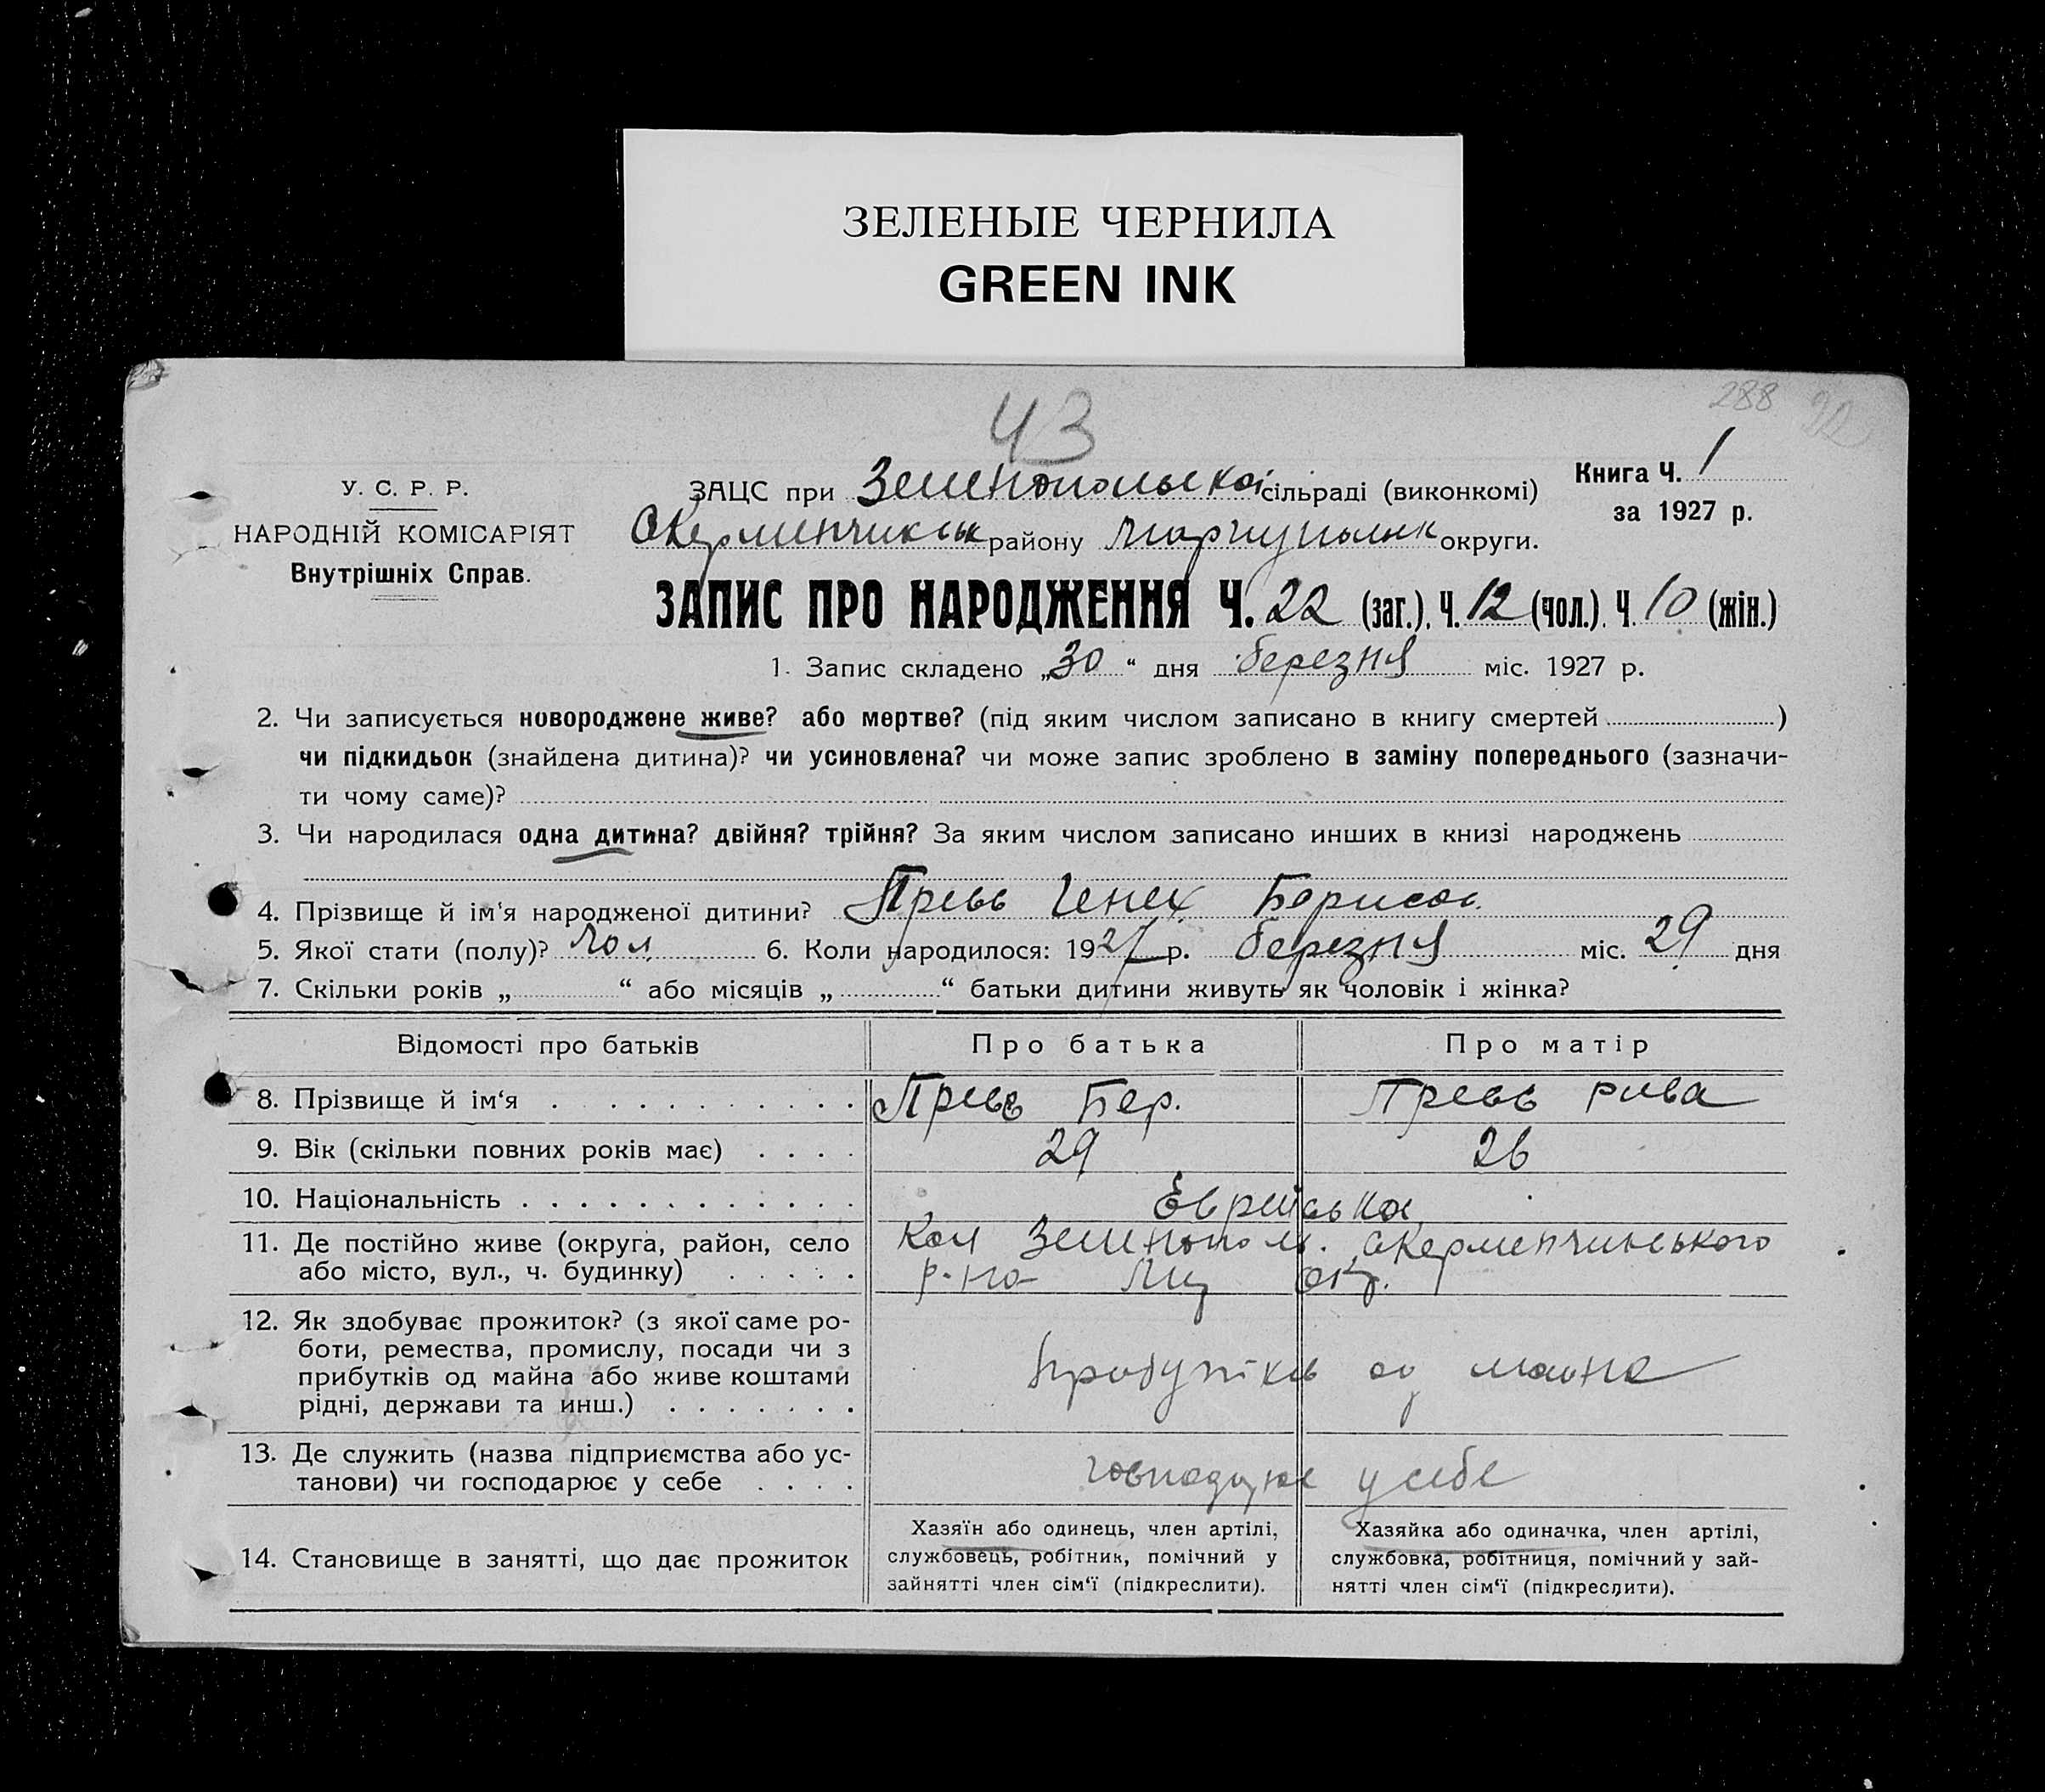 ЗЕЛЕНЫЕ ЧЕРНИЛА
GREEN INK
288 92
43
У. С. Р. Р.
НАРОДНІЙ КОМІСАРІЯТ
Внутрішніх Справ.
ЗАЦС при Зеленопольской сільраді (виконкомі)
Книга Ч. 1
за 1927 р.
району округи.
ЗАПИС ПРО НАРОДЖЕННЯ Ч. 22 (заг.). Ч. 12 (чол.). Ч. 10 (жін.)
1. Запис складено „30“ дня березня міс. 1927 р.
2. Чи записується новороджене живе? або мертве? (під яким числом записано в книгу смертей )
чи підкидьок (знайдена дитина)? чи усиновлена? чи може запис зроблено в заміну попереднього (зазначи-
ти чому саме)?
3. Чи народилася одна дитина? двійня? трійня? За яким числом записано инших в книзі народжень
4. Прізвище й ім'я народженої дитини? Генех Борисов.
5. Якої стати (полу)? Чол. 6. Коли народилося: 1927 р. березня міс. 29 дня
7. Скільки років „ “ або місяців „ “ батьки дитини живуть як чоловік і жінка?
Відомості про батьків Про батька Про матір
8. Прізвище й ім‘я Бер. Рива
9. Вік (скільки повних років має) 29 26
10. Національність Еврейська
11. Де постійно живе (округа, район, село
або місто, вул., ч. будинку)
Кол Зеленополь.
р-на окр.
12. Як здобуває прожиток? (з якої саме ро-
боти, ремества, промислу, посади чи з
прибутків од майна або живе коштами
рідні, держави та инш.)
прибутків од майна
13. Де служить (назва підприємства або ус-
танови) чи господарює у себе
господарює у себе
14. Становище в занятті, що дає прожиток
Хазяїн або одинець, член артілі,
службовець, робітник, помічний у
зайнятті член сім‘ї (підкреслити).
Хазяйка або одиначка, член артілі,
службовка, робітниця, помічний у зай-
нятті член сім‘ї (підкреслити).